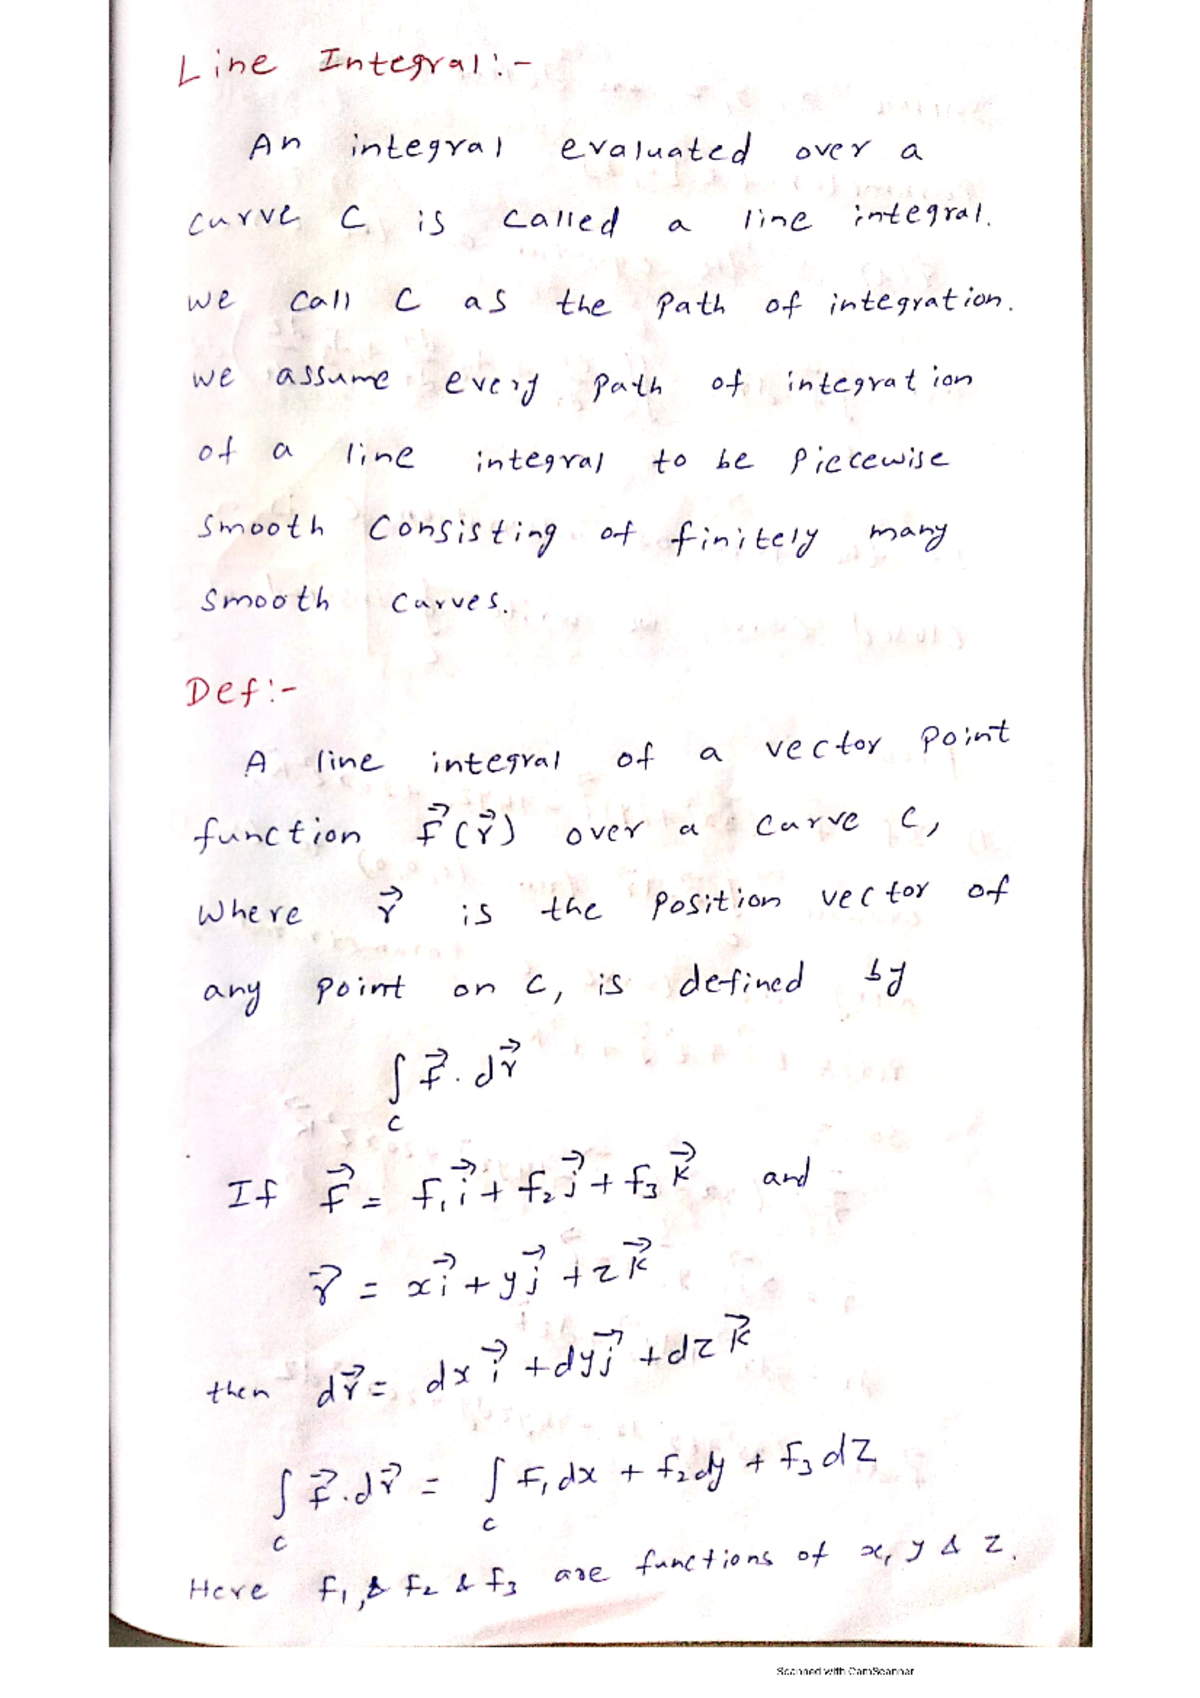 Line Integral:-
An integral evaluated over a
curve C is called a line integral.
we call C as the path of integration.
we assume every path of integration
of a line integral to be piecewise
smooth consisting of finitely many
smooth curves.
Def:-
A line integral of a vector point
function F⃗(r⃗) over a curve C,
where r⃗ is the position vector of
any point on C, is defined by
∫_C F⃗ · dr⃗
If F⃗ = f₁i⃗ + f₂j⃗ + f₃k⃗ and
r⃗ = xi⃗ + yj⃗ + zk⃗
then dr⃗ = dx i⃗ + dyj⃗ + dz k⃗
∫_C F⃗.dr⃗ = ∫_C f₁dx + f₂dy + f₃dz
Here f₁, & f₂ & f₃ are functions of x, y & z.
Scanned with CamScanner